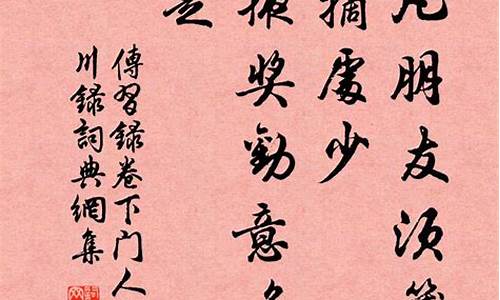 凡朋友須
摘處少
掖獎勸意多
是
傳習錄卷下門人
川錄詞典網集